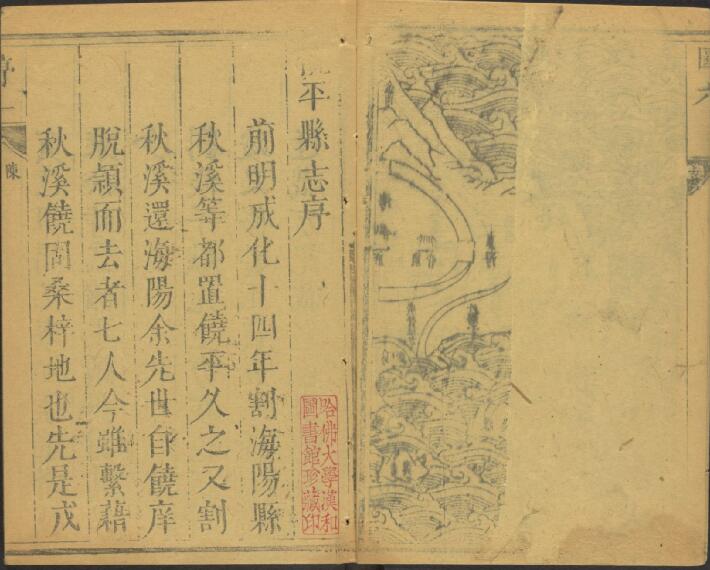 圖六
平縣志序
前明成化十四年割海陽縣
秋溪等都置饒平久之又割
秋溪還海陽余先世自饒庠
脫頴而去者七人今雖繫藉
秋溪饒固桑梓地也先是戎
序
一
陳
哈佛大學漢和
圖書館珍藏印